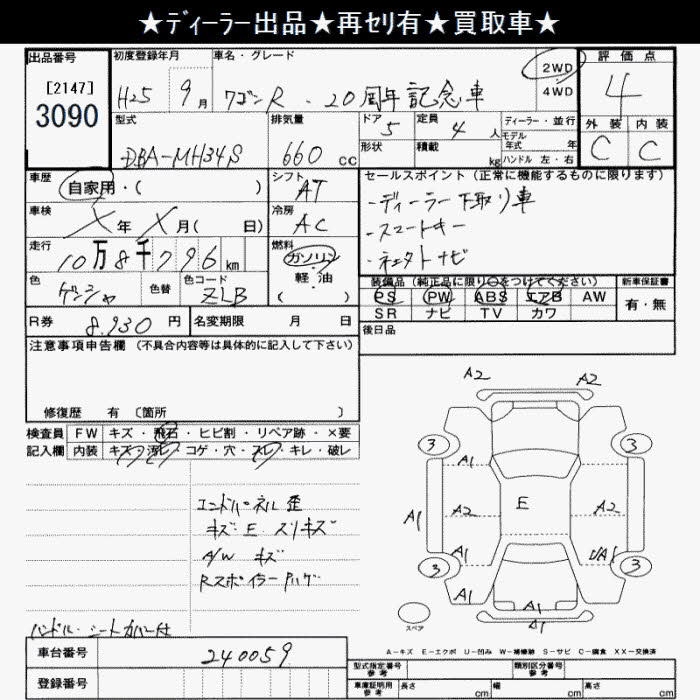 ★ﾃﾞｨｰﾗｰ出品★再ｾﾘ有★買取車★
出品番号 [2147] 3090
初度登録年月 H25 9月
車名・グレード ワゴンR ・20周年記念車
2WD 4WD
評価点 4
外装 C 内装 C
型式 DBA-MH34S
排気量 660 cc
ドア 5 定員 4 人
形状 積載 kg
ディーラー・並行
モデル年式 年
ハンドル 左・右
車歴 自家用・( )
シフト AT
車検 X年 X月( 日)
冷房 AC
走行 10万8千796 km
燃料 ガソリン 軽・油 ( )
色 ゲンシャ 色替 色コード ZLB
セールスポイント (正常に機能するものに限ります)
・ディーラー下取り車
・スマートキー
装備品 (純正品に限り○をつけてください)
PS PW ABS エアB AW
SR ナビ TV カワ
新車保証書 有・無
R券 8.930 円 名変期限 月 日
後日品
注意事項申告欄 (不具合内容等は具体的に記入して下さい)
修復歴 有 〔箇所 〕
検査員記入欄
FW キズ・飛石・ヒビ割・リペア跡・×要
内装 キズ・汚レ・コゲ・穴・スレ・キレ・破レ
エンドパネル歪
キズ・E スリキズ
A/W キズ
Rスポイラーハゲ
ハンドル・シートカバー付
A2 A2
3 3
A1
A1 A2 E A2
A1 U/A1
3 3
A1 A1
スペア A1
A-キズ E-エクボ U-凹み W-補修跡 S-サビ C-腐食 XX-交換済
車台番号 240059
登録番号
型式指定番号 参考 類別区分番号 参考
車庫証明用 参考 長さ cm 幅 cm 高さ cm